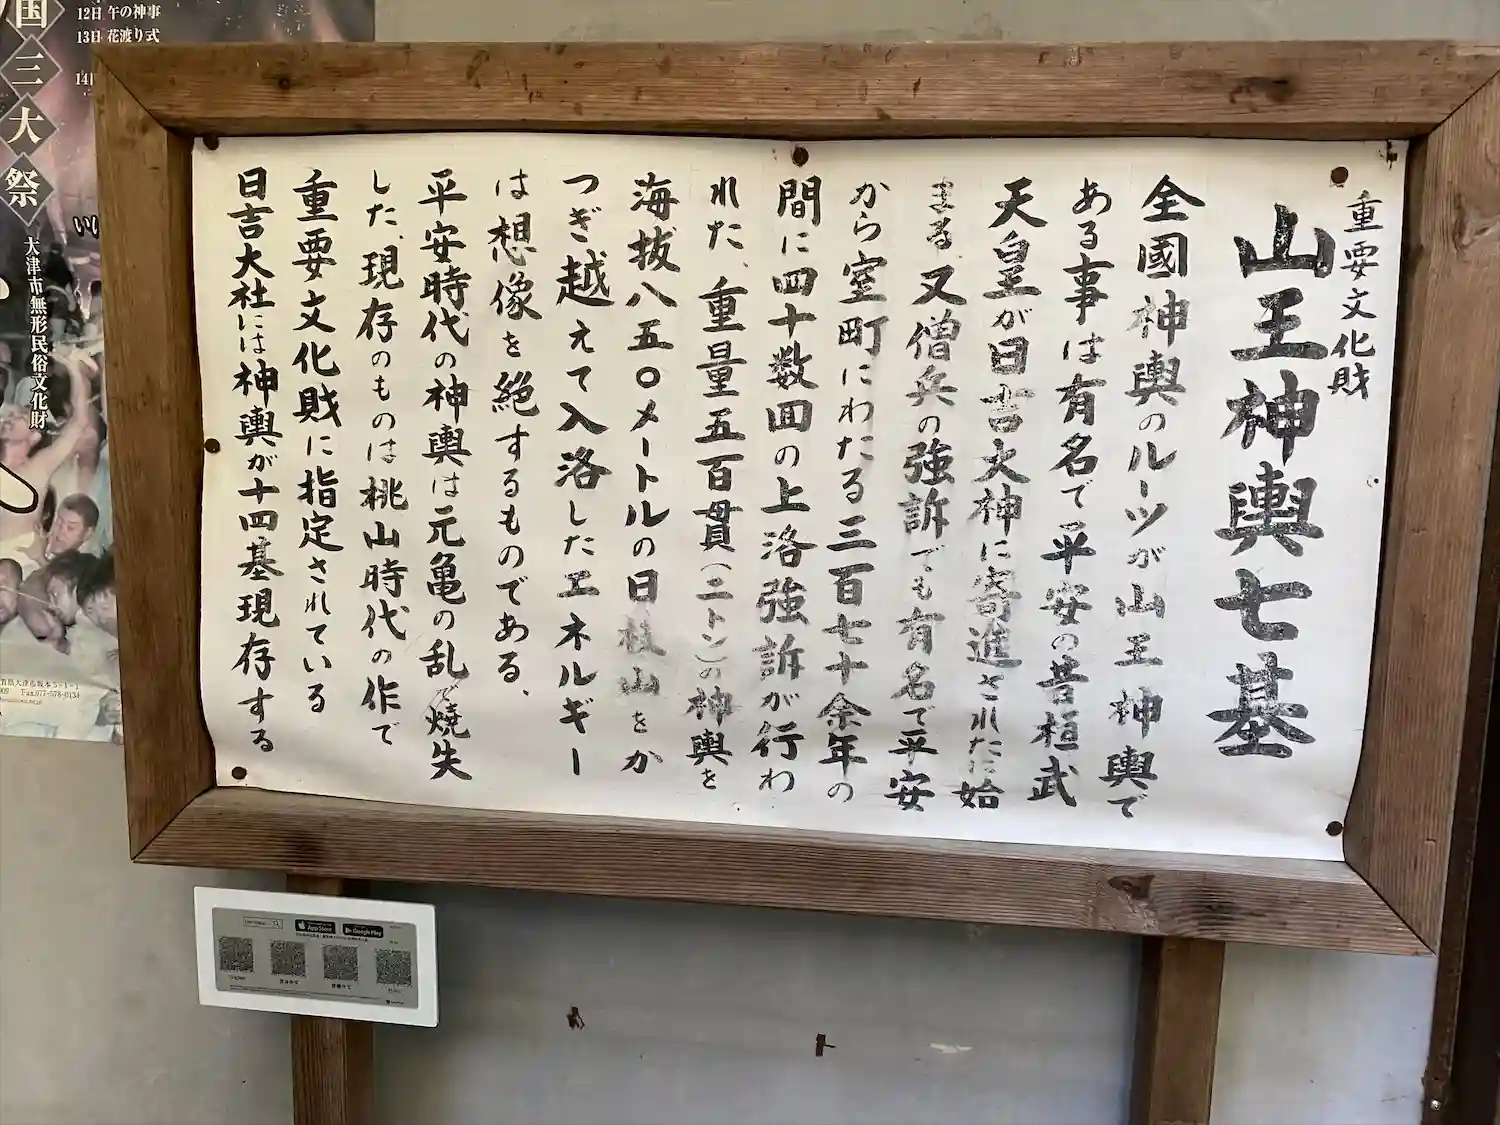 重要文化財
山王神輿七基
全國神輿のルーツが山王神輿で
ある事は有名で平安の昔桓武
天皇が日吉大神に寄進されたに始
まる、又僧兵の強訴でも有名で平安
から室町にわたる三百七十余年の
間に四十数回の上洛強訴が行わ
れた、重量五百貫(二トン)の神輿を
海抜八五〇メートルの日枝山をか
つぎ越えて入洛したエネルギー
は想像を絶するものである、
平安時代の神輿は元亀の乱で焼失
した、現存のものは桃山時代の作で
重要文化財に指定されている
日吉大社には神輿が十四基現存する
12日 午の神事
13日 花渡り式
国三大祭
大津市無形民俗文化財
Fax.077-578-0134
App Store
Google Play